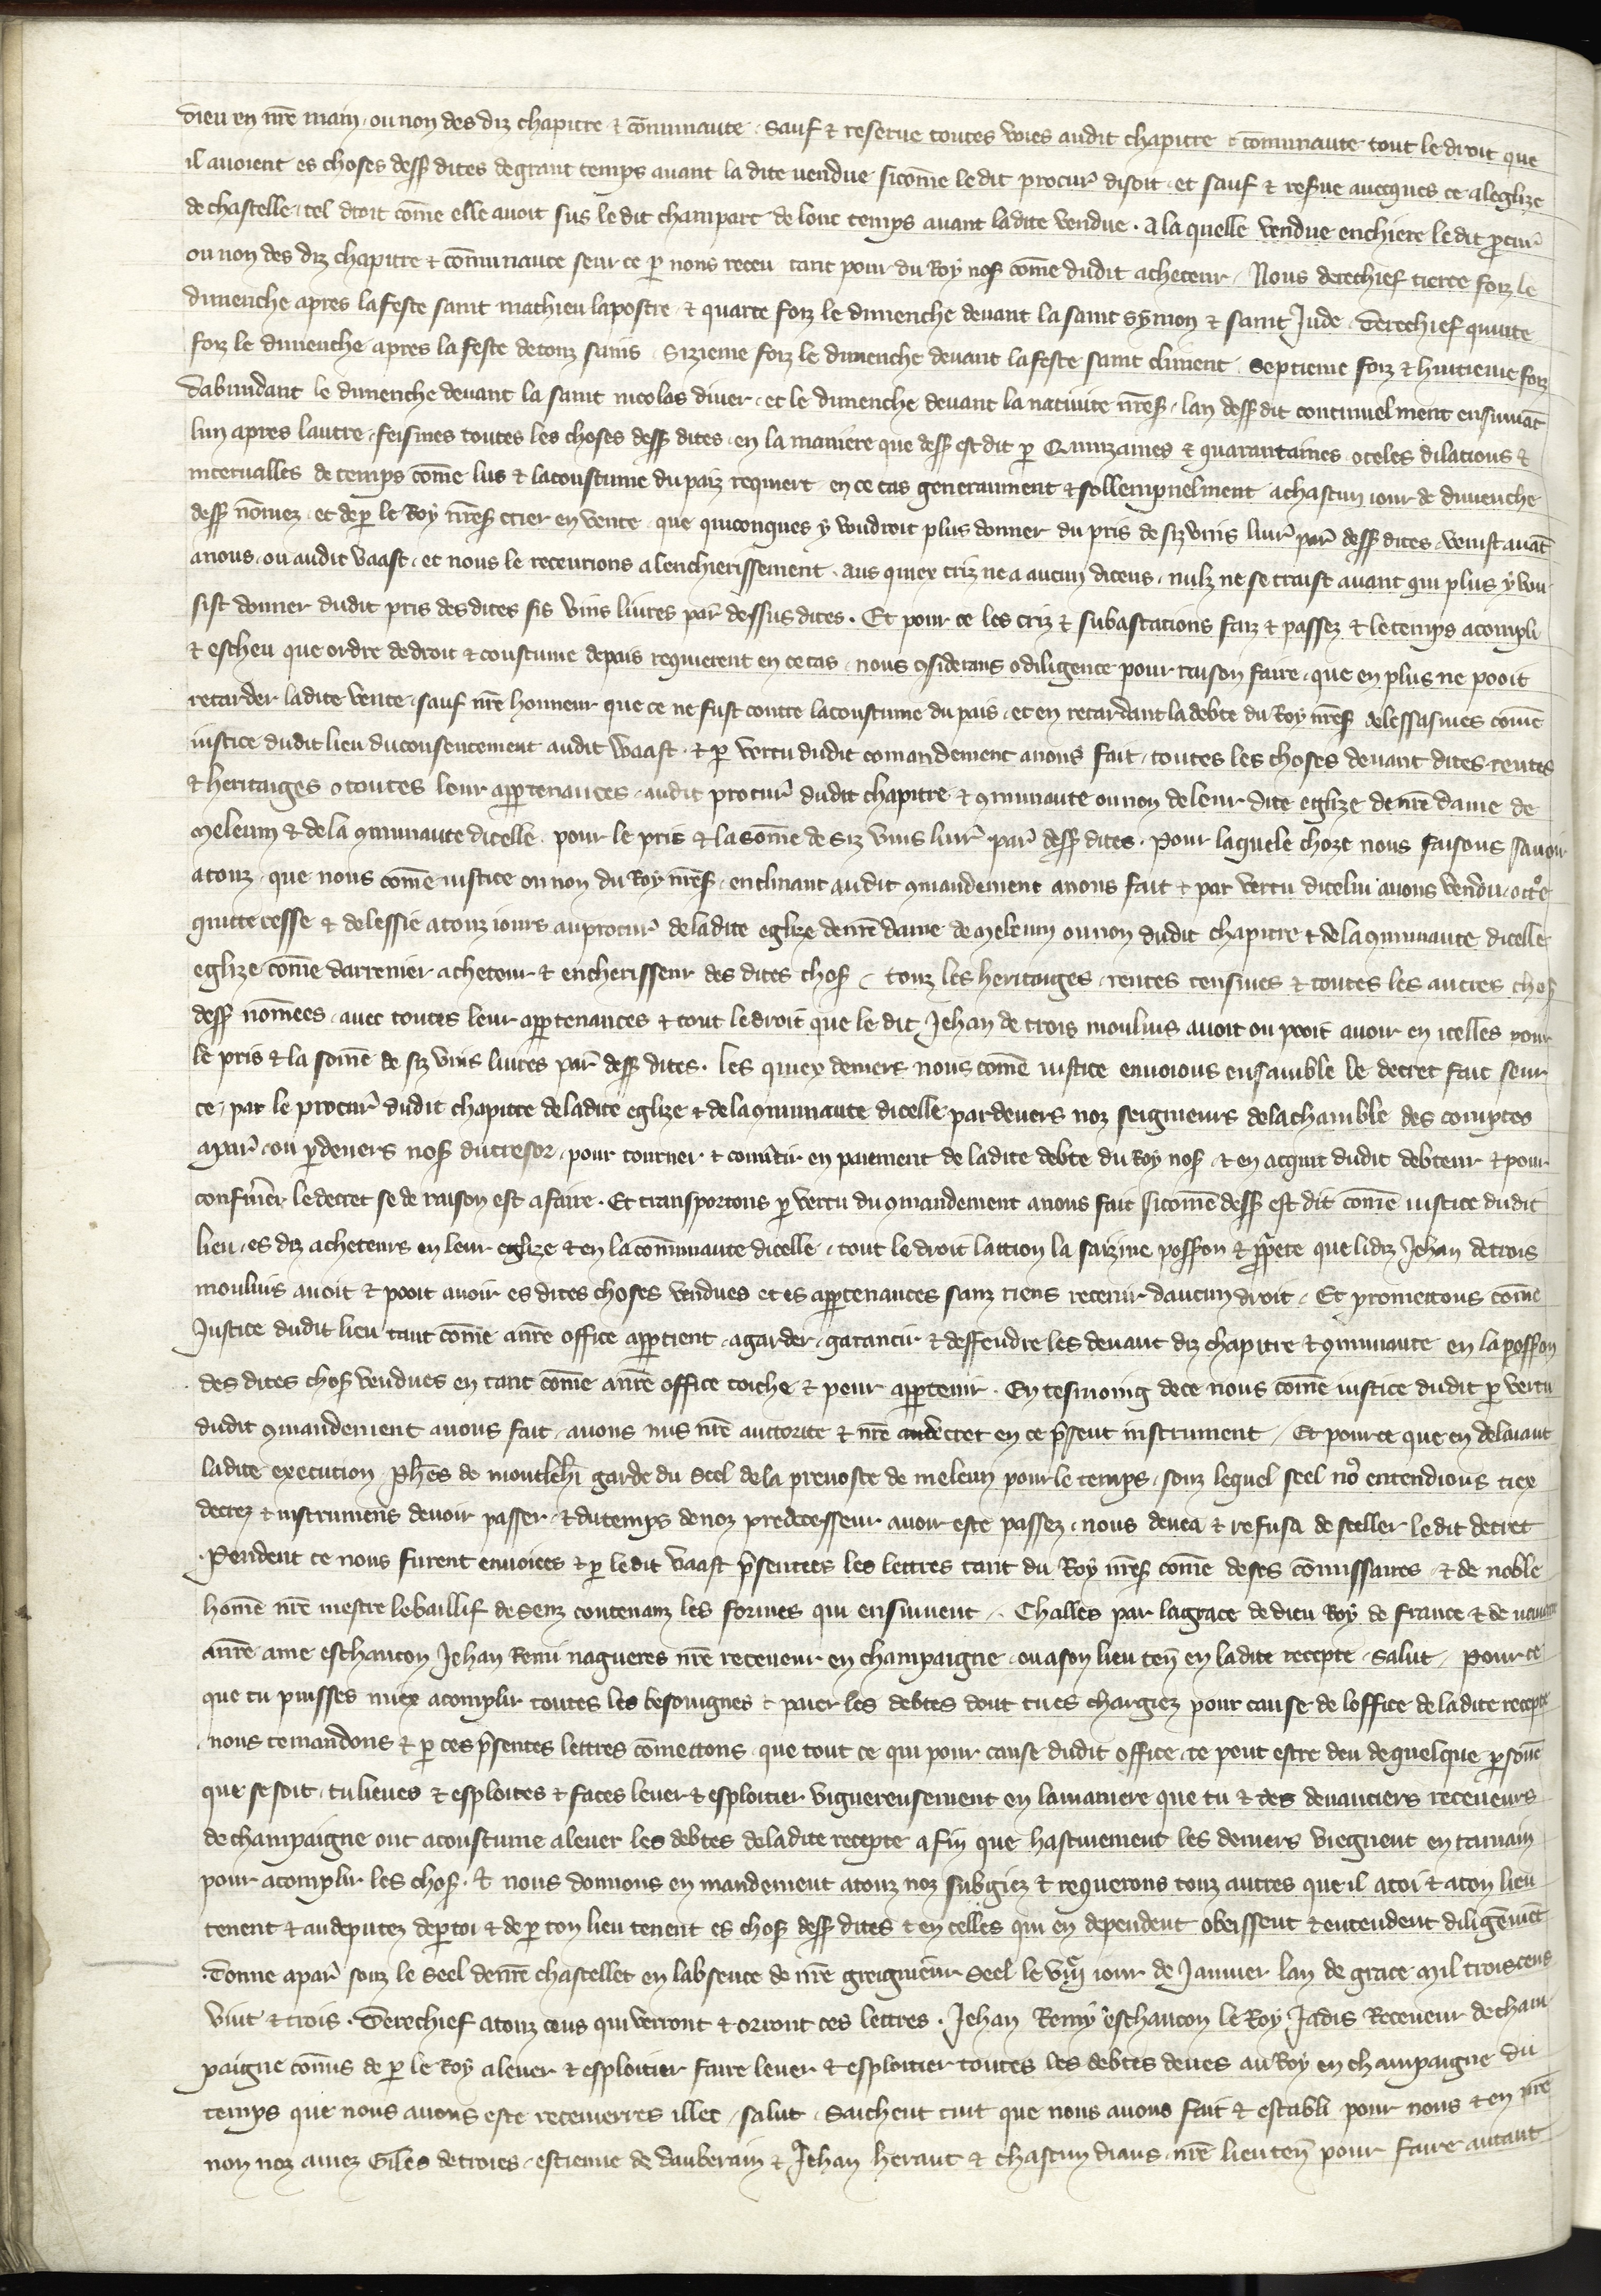 dieu en nre main ou non des diz chapitre & cōmunaute . Sauf & reserve toutes voies audit chapitre & communaute tout le droit que
il avoient es choses dess dites de grant temps avant la dite vendue sicōme le dit procur disoit . et sauf & resve avecques ce a leglize
de chastelle . tel droit cōme elle avoit sus le dit champart de lonc temps avant ladite vendue . a la quelle vendue enchiere le dit pcur
ou non des diz chapitre & cōmunaute seur ce p nous receu tant pour du Roy nos cōme dudit acheteur . Nous derechief tierce foiz le
dimenche apres la feste saint mathieu lapostre & quarte foiz le dimenche devant la saint Symon & saint Jude . Derechief quinte
foiz le dimenche apres la feste de touz sains . Sizieme foiz le dimenche devant la feste saint climent . Septieme foiz & huitieme foiz
dabundant le dimenche devant la saint nicolas diver . et le dimenche devant la nativite nres . lan dess dit continuelment ensuivāt
lun apres lautre . feismes toutes les choses dess dites . en la maniere que dess est dit p Quinzaines & quarantaines . oteles dilacions &
intervalles de temps cōme lus & la coustume du paiz requiert en ce cas generaument & sollempnelment a chascun iour de dimenche
dess nōmez . et de p le Roy nres crier en vente . que quiconques y voudroit plus donner du pris de siz vins livr par dess dites . venist avāt
a nous . ou audit Vaast . et nous le recevrions a lenchierissement . aus quiex criz ne a aucun diceus . nulz ne se traist avant qui plus y vou
sist donner dudit pris desdites sis vins livres par dessus dites . Et pour ce les criz & subastacions faiz & passez & le temps acompli
& escheu que ordre de droit & coustume de pais requierent en ce cas . nous 9siderans o diligence pour raison faire . que en plus ne pooit
retarder ladite vente . sauf nre honneur que ce ne fust contre la coustume du pais . et en retardant la debte du Roy nres delessasmes cōme
iustice dudit lieu du consentement audit Waast . & p vertu dudit comandement a nous fait . toutes les choses devant dites rentes
& heritaiges o toutes leur appartenances . audit procur dudit chapitre & 9munaute ou non de leur dite eglize de nre dame de
Meleun & de la 9munaute dicelle . pour le pris & la sōme de siz vins livr par dess dites . Pour laquele choze nous faisons savoir
a touz . que nous cōme iustice ou non du Roy nres . enclinant audit 9mandement a nous fait & par vertu dicelui avons vendu . octroe
quitte cesse & delessie a touz iours au procur de ladite eglize de nre dame de Meleun ou non dudit chapitre & de la 9munaute dicelle
eglize cōme darrenier acheteur & encherisseur des dites chos . touz les heritaiges . rentes censives & toutes les autres chos
dess nōmees . avec toutes leur appartenances & tout le droit que le dit Jehan de trois moulins avoit ou pooit avoir en icelles pour
le pris & la sōme de siz vins livres par dess dites . les quiex deniers nous cōme iustice envoions ensamble le decret fait seur
ce . par le procur dudit chapitre de ladite eglize & de la 9munaute dicelle par devers noz seigneurs de la chamble des comptes
a par . ou p devers nos du tresor . pour tourner & convertir en paiement de ladite debte du Roy nos & en acquit dudit debteur & pour
confmer le decret se de raison est a faire . Et transportons p vertu du 9mandement a nous fait sicōme dess est dit cōme iustice dudit
lieu . es diz acheteurs en leur eglize & en la cōmunaute dicelle . tout le droit laction la saizine possson & pprete que li diz Jehan de trois
moulins avoit & pooit avoir es dites choses vendues et es appartenances sanz riens retenir daucun droit . Et promettons cōme
Justice dudit lieu tant cōme a nre office appartient . a garder . garantir & deffendre les devant diz chapitre & 9munaute en la possson
des dites chos vendues en tant cōme a nre office toiche & peut appartenir . En tesmoing de ce nous cōme iustice dudit p vertu
dudit 9mandement a nous fait . avons mis nre auctorite & nre decret en ce psent instrument . Et pour ce que en delaiant
ladite execution . Phes de montlehi garde du Seel de la prevoste de meleun pour le temps . souz lequel seel no entendions tiex
decrez & instrumens devoir passer . & du temps de noz predecesseur avoir este passez . nous devea & refusa de seeller le dit decret
. Pendent ce nous furent envoiees & p le dit Vaast psentees les lettres tant du Roy nres cōme de ses cōmissaires & de noble
home nre mestre le baillif de Senz contenanz les formes qui ensuivent . Challes par la grace de dieu Roy de france & de navarre
a nre ame eschancon Jehan Remi nagueres nre receveur en champaigne . ou a son lieu ten en ladite recepte . salut . Pour ce
que tu puisses miex acomplir toutes les besoingnes & paier les debtes dont tu es chargiez pour cause de loffice de ladite recepte
nous te mandons & p ces psentes lettres cōmettons . que tout ce qui pour cause dudit office te peut estre deu de quelque psone
que se soit . tu lieves & esploites & faces lever & esploitier viguereusement en la maniere que tu & tes devanciers receveurs
de champaigne ont acoustume a lever les debtes de ladite recepte a fin que hastivement les deniers viegnent en ta main
pour acomplir les chos . & nous donnons en mandement a touz noz subgiez & requerons touz autres que il a toi & a ton lieu
tenent & au deputez de p toi & de p ton lieu tenent es chos dess dites & en celles qui en dependent obeissent & entendent diligēmēt
. Donne a par souz le Seel de nre chastellet en labsence de nre greigneur Seel le viij iour de Janvier lan de grace Mil trois cens
vint & trois . Derechief a touz ceus qui verront & orront ces lettres . Jehan Remy eschancon le Roy Jadis Receveur de cham
paigne cōmis de p le Roy a lever & esploitier faire lever & esploitier toutes les debtes deues au Roy en champaigne du
temps que nous avons este recevierres illec . salut . Saichent tuit que nous avons fait & establi pour nous & en nre
non noz amez Giles de troies . estienne de dauberain & Jehan heraut & chascun diaus nre lieuten pour faire autant